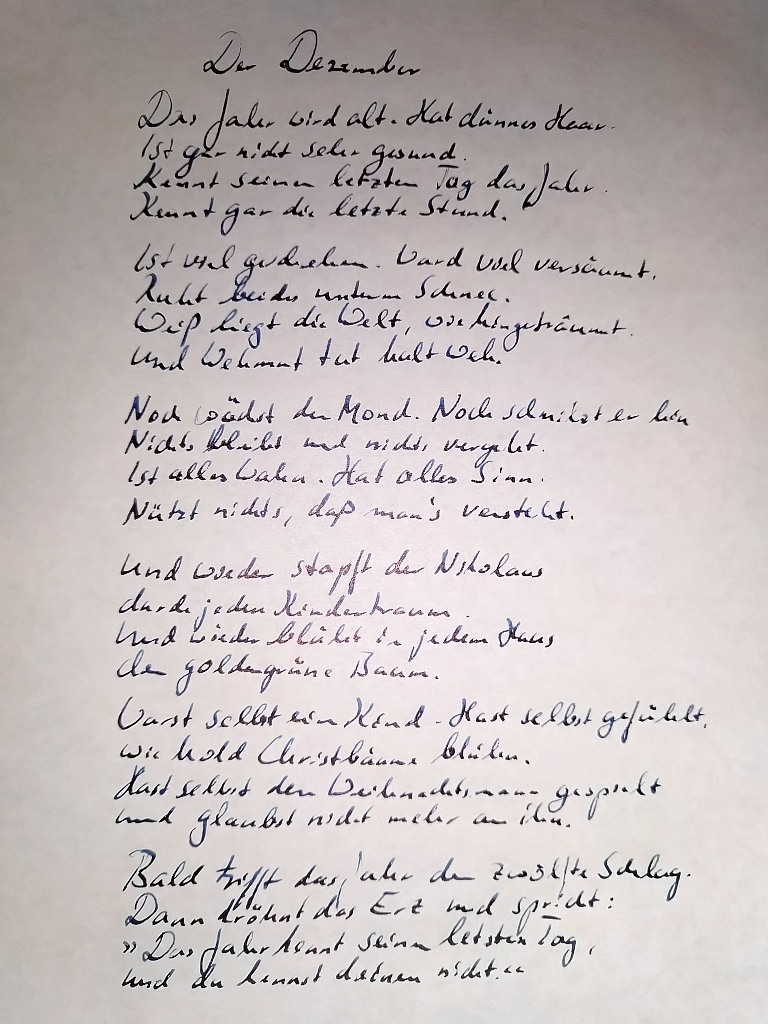 Der Dezember
Das Jahr wird alt. Hat dünnes Haar.
Ist gar nicht sehr gesund.
Kennt seinen letzten Tag das Jahr.
Kennt gar die letzte Stund.
Ist viel geschehen. Ward viel versäumt.
Ruht beides unterm Schnee.
Weiß liegt die Welt, wie hingeträumt.
Und Wehmut tut halt weh.
Noch wächst der Mond. Noch schmilzt er hin
Nichts bleibt und nichts vergeht.
Ist alles Wahn. Hat alles Sinn.
Nützt nichts, daß man's versteht.
Und wieder stapft der Nikolaus
durch jeden Kindertraum.
Und wieder blüht in jedem Haus
der goldengrüne Baum.
Warst selbst ein Kind. Hast selbst gefühlt,
wie hold Christbäume blühn.
Hast selbst den Weihnachtsmann gespielt
und glaubst nicht mehr an ihn.
Bald trifft das Jahr der zwölfte Schlag.
Dann dröhnt das Erz und spricht:
»Das Jahr kennt seinen letzten Tag,
und du kennst deinen nicht.“